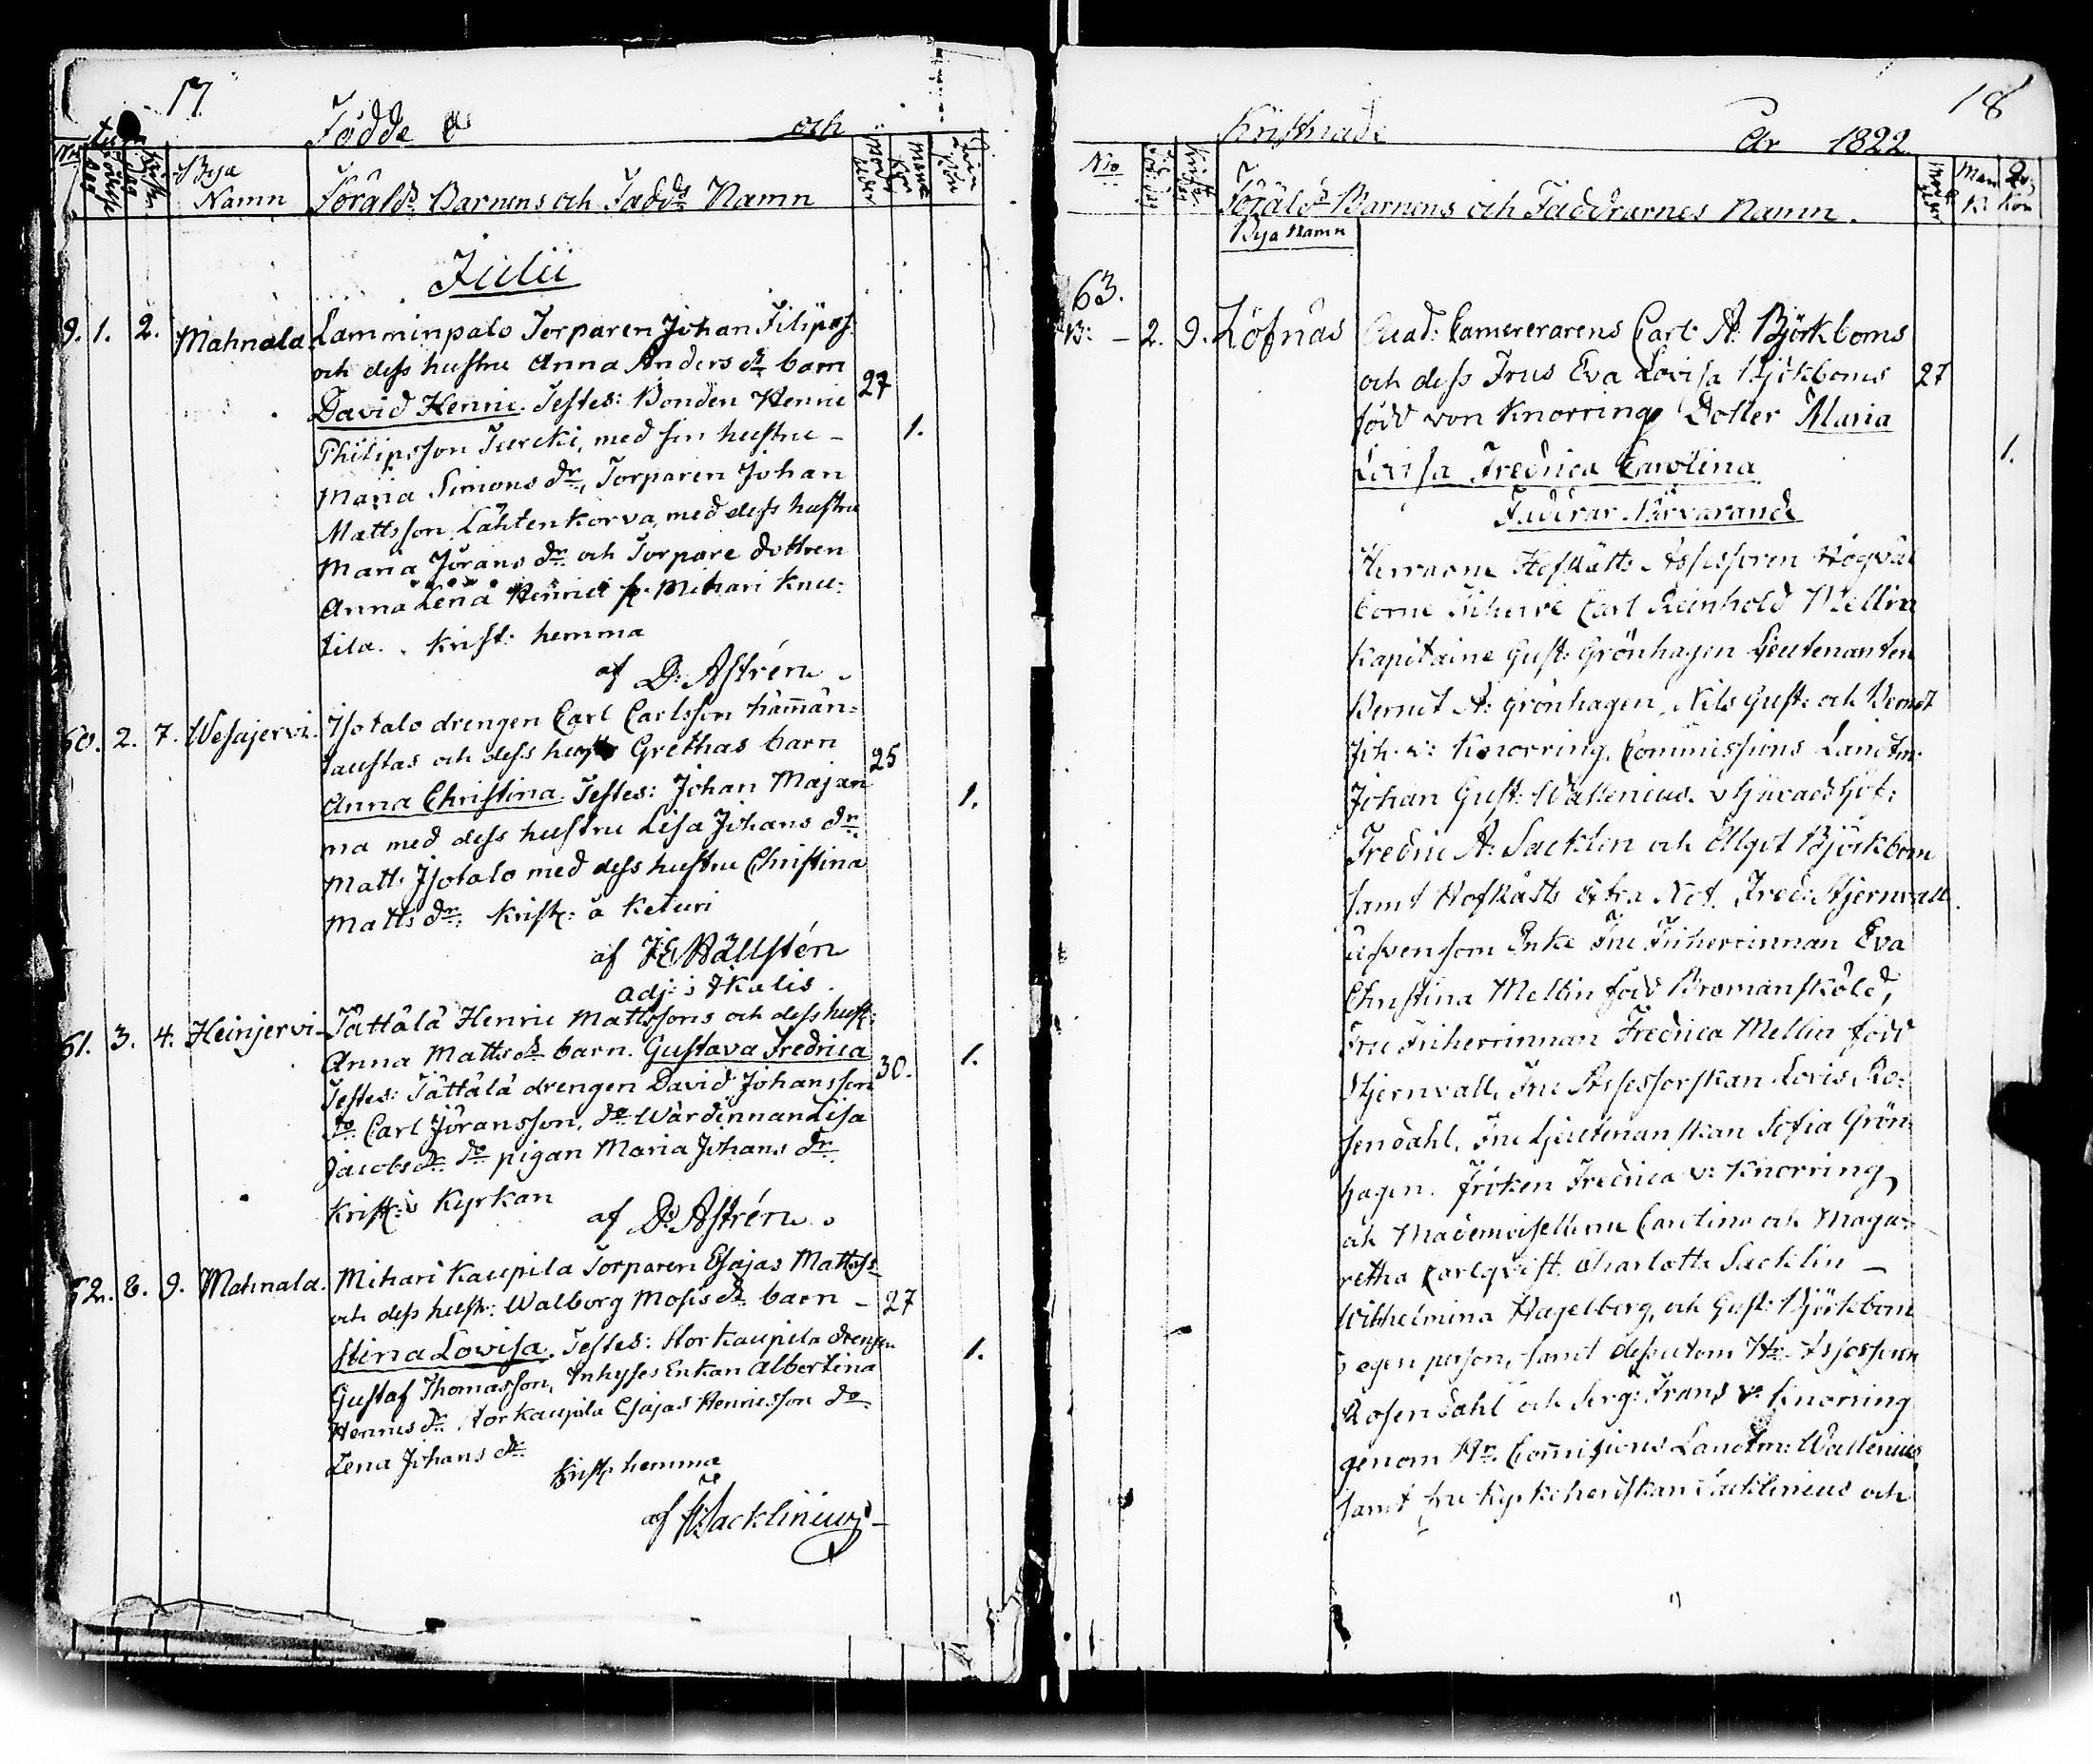 17
Födde
och
Bya
Namn
Föräld: Barnens och Fadd: Namn
Julii
9. 1. 2. Mahnala Lamminpalo Torparen Johan Filipss:
och dess hustru Anna Anders dr barn
David Henric. Testes: Bonden Henric 27
Philipsson Turcki, med sin hustru - 1.
Maria Simons dr, Torparen Johan
Mattsson Lähtenkorva, med dess hustru
Maria Jörans dr och Torpare dottren
Anna Lena Henrici fr. Mihari Knu-
tila. Krist: hemma
af D: Astrén
60. 2. 7. Wesajervi. Isotalo drengen Carl Carlsson hämmän-
taustas och dess hustr Grethas barn 25
Anna Christina. Testes: Johan Majan 1.
ma med dess hustru Lisa Johans dr
Matts Isotalo med dess hustru Christina
Matts dr. Krist: å Keturi
af J E Hällstén
adj: i Ikalis.
61. 3. 4. Heinjervi Tättälä Henric Mattssons och dess hust:
Anna Matts dr barn. Gustava Fredrica 30. 1.
Testes: Tättälä drengen David Johansson
do Carl Jöransson, do Wärdinnan Lisa
Jacobs dr do pigan Maria Johans dr
Krist: i Kyrkan
af D: Astrén
62. 8. 9. Mahnala. Mihari Kaupila Torparen Esajas Mattss-
och dess hustr: Walborg Mosis dr barn - 27
Stina Lovisa. Testes: Storkaupila drengen 1.
Gustaf Thomasson, Inhyses Enkan Albertina
Henrics dr Storkaupila Esajas Henricsson do
Lena Johans dr
Krist: hemma
af Sacklinius
18
Kristnade
År 1822
Nro
Föräld:s Barnens och Faddrarnes Namn.
Bya Namn
63.
B: - 2. 9. Löfnäs Acad: Camererarens Carl A: Björkboms
och dess Frus Eva Lovisa Björkboms 27
född von Knorring Dotter Maria
Lovisa Fredrica Carolina 1.
Faddrar Närvarande
Herrarne HofRätts Assessoren Högväl
borne Friherre Carl Reinhold Mellin
Kapitaine Gust: Grönhagen Lieutenanten
Berndt A: Grönhagen, Nils Gust: och Berndt
Joh. v: Knorring, Commissions Landtm:
Johan Gust: Wallenius.
Fredric A: Sacklen och Algot Björkbom
samt HofRätts Extra Not. Fred: Stjernvall.
äfvensom Enke Fru Friherrinnan Eva
Christina Mellin född Bromansköld,
Fru Friherrinnan Fredrica Mellin född
Stjernvall, Fru Assessorskan Lovis. Ro-
sendahl, Fru Lieutenanskan Sofia Grön-
hagen. Fröken Fredrica v: Knorring,
och Mademoisellerne Carolina och Maga-
retha Carlqvist. Charlotte Sacklin -
Wilhelmina Hagelberg, och Gust: Björkbom
i egen person, samt dessutom Hr Assessoren
Rosendahl och Serg: Frans v: Knorring
genom Hr. Commissions Landtm: Wallenius
samt Fru Kyrkoherdskan Sacklinius och